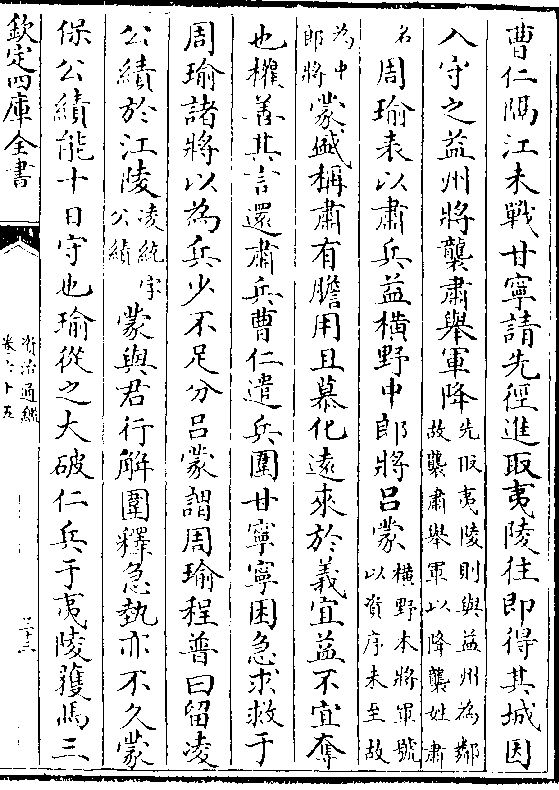 曹仁隔江未戰甘寧請先徑進取夷陵往即得其城因
入守之益州將襲肅舉軍降先取夷陵則與益州為鄰故襲肅舉軍以降襲姓肅
名周瑜表以肅兵益橫野中郎將呂蒙橫野本將軍號以資序未至故
為中郎將蒙盛稱肅有膽用且慕化遠來於義宜益不宜奪
也權善其言還肅兵曹仁遣兵圍甘寧寧困急求救于
周瑜諸將以為兵少不足分呂蒙謂周瑜程普曰留凌
公績於江陵凌統字公績蒙與君行解圍釋急埶亦不久蒙
保公績能十日守也瑜從之大破仁兵于夷陵獲馬三
欽定四庫全書
資治通鑑
卷六十五
三十三